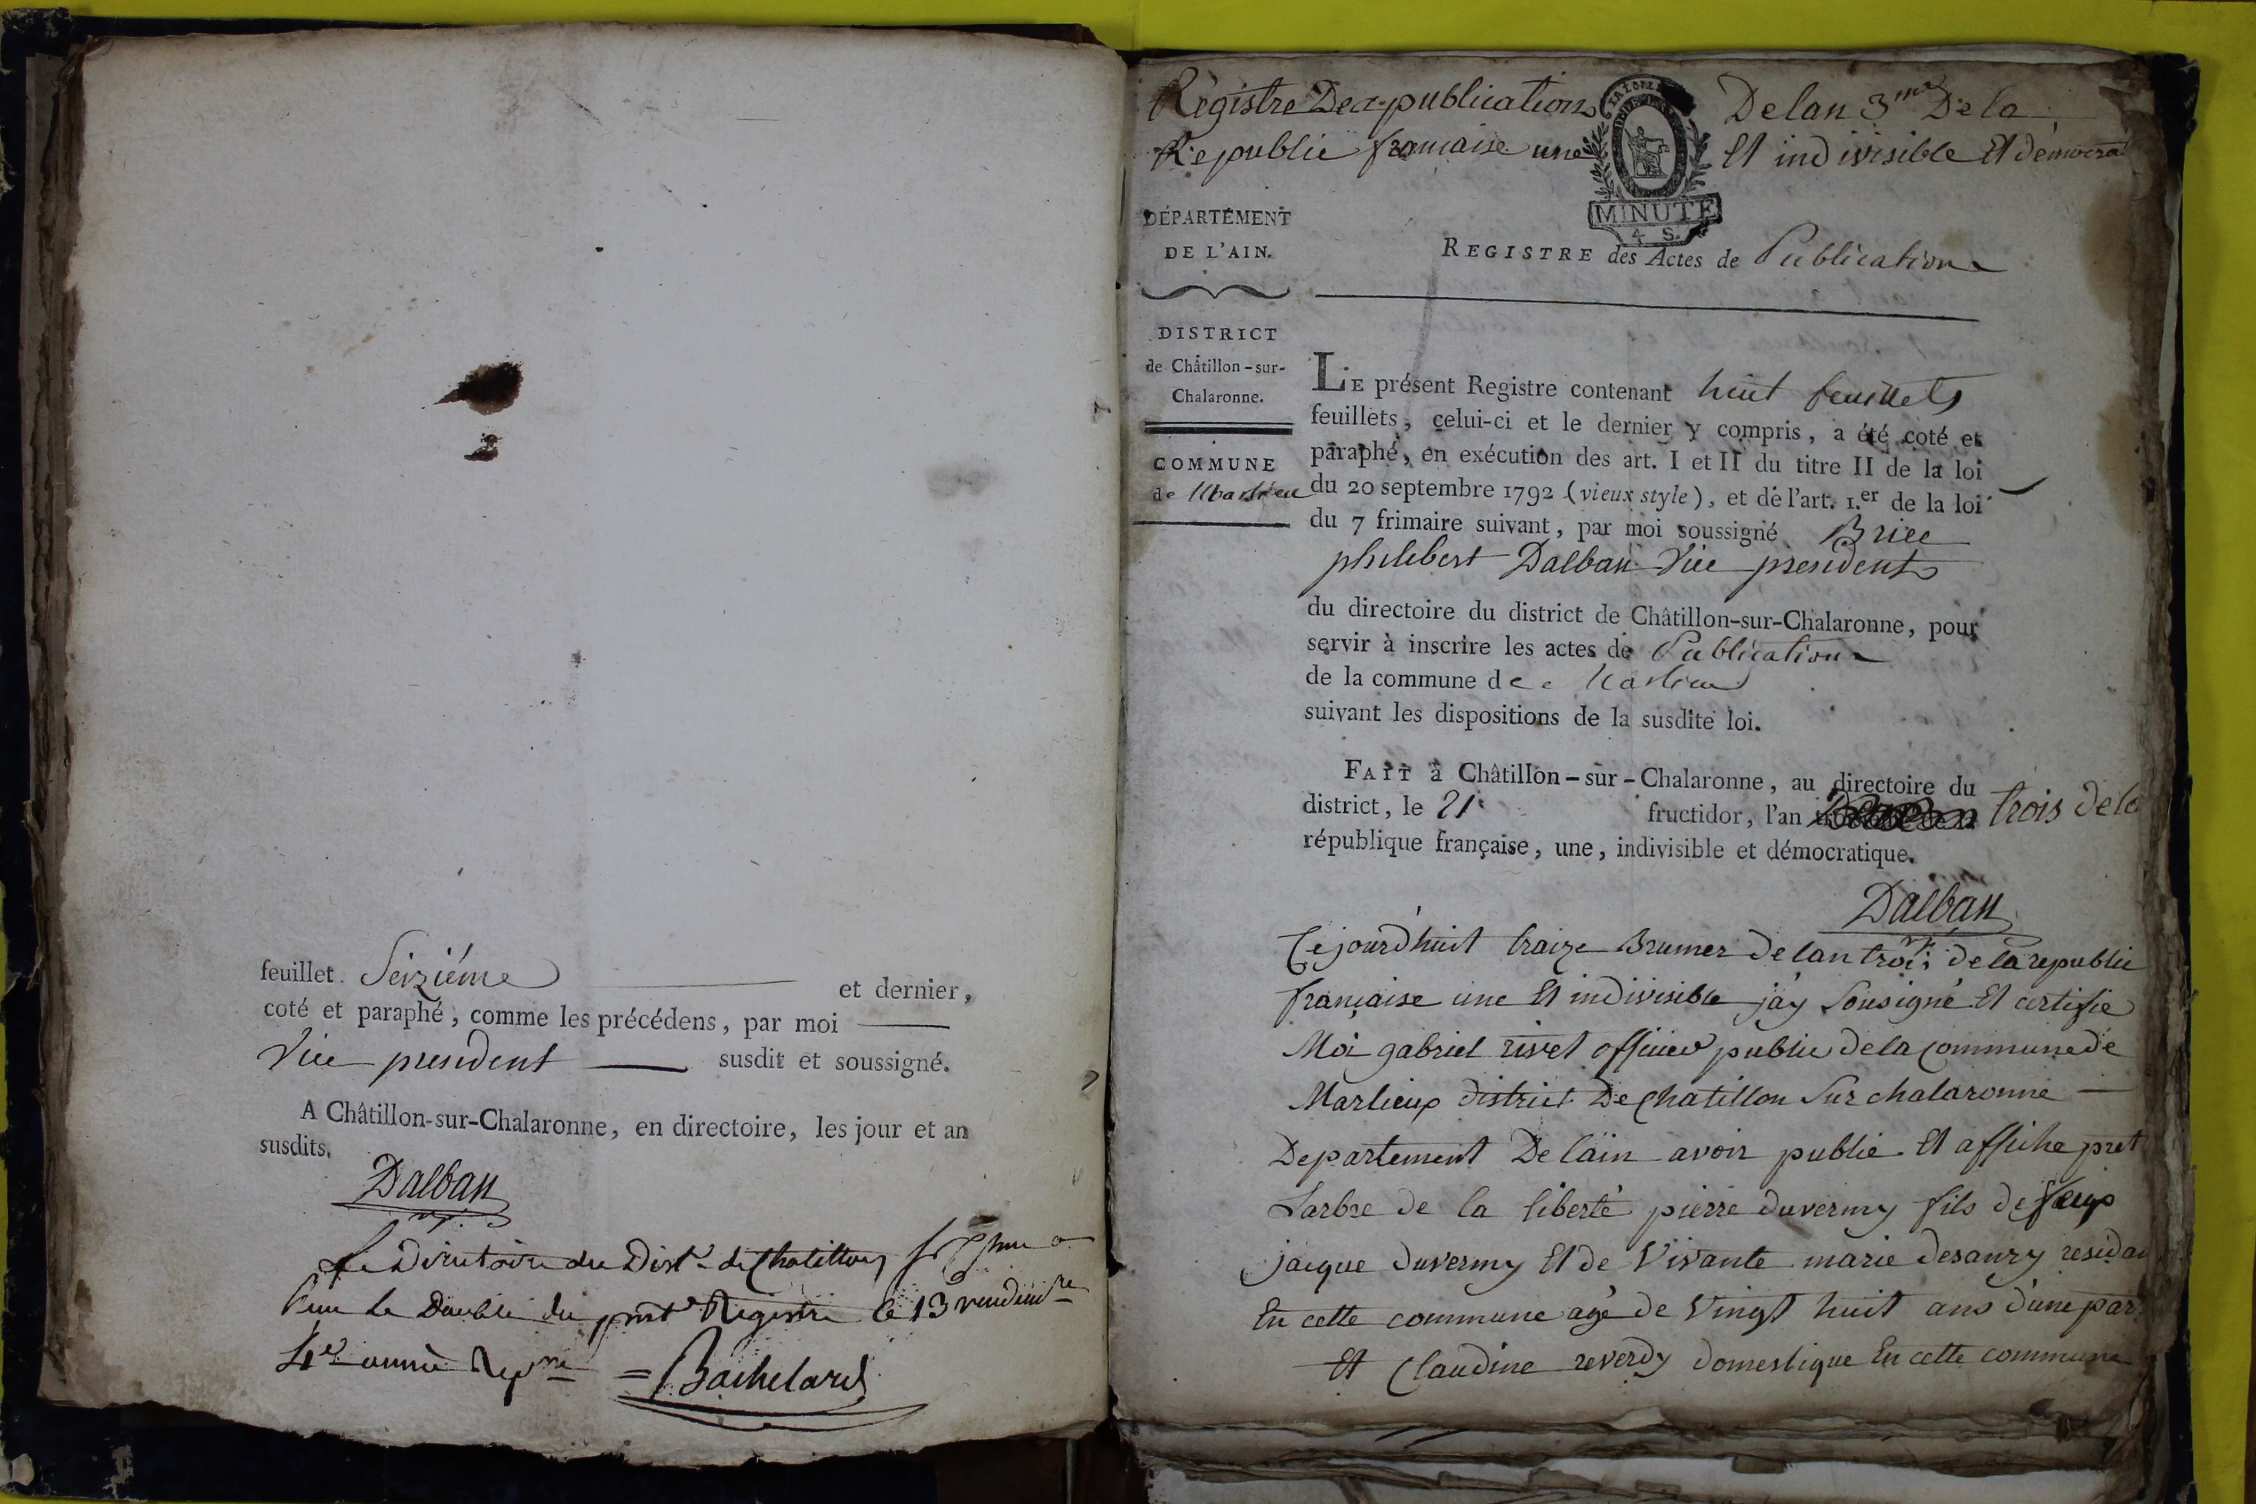 feuillet Seiziéme et dernier,
coté et paraphé, comme les précédens, par moi
Vice president susdit et soussigné.
A Châtillon-sur-Chalaronne, en directoire, les jour et an
susdits.
Dalban
Le Directoire du Dist. de Chatillon
le Double du prnt Registre le 13 vendemre
4e année Repne
Bachelard
Régistre Des publications Delan 3me De la
Republic francaise une Et indivisible Et démocra
MINUTE
4 S.
DÉPARTEMENT
DE L'AIN.
REGISTRE des Actes de Publication
DISTRICT
de Châtillon-sur-
Chalaronne.
COMMUNE
de Marlieu
LE présent Registre contenant huit feuillets
feuillets, celui-ci et le dernier y compris, a été coté et
paraphé, en exécution des art. I et II du titre II de la loi
du 20 septembre 1792 (vieux style), et de l'art. 1.er de la loi
du 7 frimaire suivant, par moi soussigné Brice
philibert Dalban Vice president
du directoire du district de Châtillon-sur-Chalaronne, pour
servir à inscrire les actes de Publication
de la commune de Marlieu
suivant les dispositions de la susdite loi.
FAIT à Châtillon-sur-Chalaronne, au directoire du
district, le 21 fructidor, l'an trois de la
république française, une, indivisible et démocratique.
Dalban
Cejourdhuit traize Brumer De lan trois de la republic
francaise une Et indivisible jáy Sousigné Et certifie
Moi gabriel rivet officier public de la commune de
Marlieux district De chatillon Sur chalaronne
Departement De láin avoir publié Et affiche pret
Larbre de la liberté pierre duvermy fils de feux
jacque duvermy Et de Vivante marie desanry residan
En cette commune agé de Vingt huit ans d'une par
Et Claudine reverdy domestique En cette commune